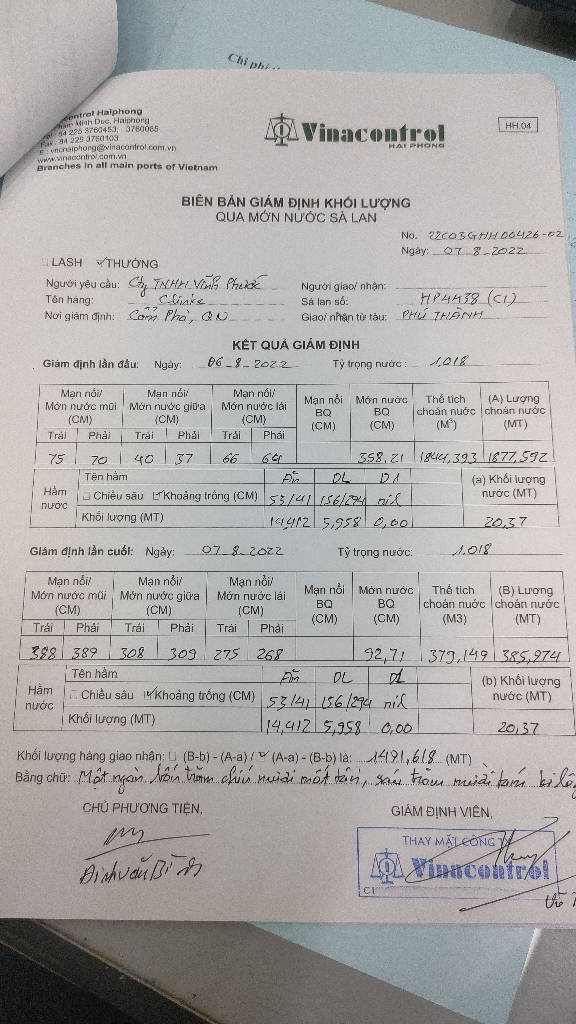 Chi phí
control Haiphong
Phạm Minh Duc, Haiphong
84 225 3760453; 3760065
Fax: 84 225 3760103
E: vnchaiphong@vinacontrol.com.vn
www.vinacontrol.com.vn
Branches in all main ports of Vietnam
Vinacontrol
HAI PHONG
HH.04
BIÊN BẢN GIÁM ĐỊNH KHỐI LƯỢNG
QUA MỚN NƯỚC SÀ LAN
No. 22C03GHH00426-02
Ngày: 07-8-2022
LASH THƯỜNG
Người yêu cầu: Cty TNHH Vĩnh Phước Người giao/ nhận:
Tên hàng: Clinke Sà lan số: HP4438 (C1)
Nơi giám định: Cẩm Phả, QN Giao/ nhận từ tàu: PHÚ THÀNH
KẾT QUẢ GIÁM ĐỊNH
Giám định lần đầu: Ngày: 06-8-2022 Tỷ trọng nước: 1,018
Mạn nổi/ Mớn nước mũi (CM) Mạn nổi/ Mớn nước giữa (CM) Mạn nổi/ Mớn nước lái (CM) Mạn nổi BQ (CM) Mớn nước BQ (CM) Thể tích choán nước (M3) (A) Lượng choán nước (MT)
Trái Phải Trái Phải Trái Phải
75 70 40 37 66 64 358,21 1844,393 1877,592
Hầm nước Tên hầm Fin DL D1 (a) Khối lượng nước (MT)
Chiều sâu Khoảng trống (CM) 53/41 156/294 nil
Khối lượng (MT) 14,412 5,958 0,00 20,37
Giám định lần cuối: Ngày: 07-8-2022 Tỷ trọng nước: 1.018
Mạn nổi/ Mớn nước mũi (CM) Mạn nổi/ Mớn nước giữa (CM) Mạn nổi/ Mớn nước lái (CM) Mạn nổi BQ (CM) Mớn nước BQ (CM) Thể tích choán nước (M3) (B) Lượng choán nước (MT)
Trái Phải Trái Phải Trái Phải
388 389 308 309 275 268 92,71 379,149 385,974
Hầm nước Tên hầm Fin DL D1 (b) Khối lượng nước (MT)
Chiều sâu Khoảng trống (CM) 53/41 156/294 nil
Khối lượng (MT) 14,412 5,958 0,00 20,37
Khối lượng hàng giao nhận: (B-b) - (A-a) / (A-a) - (B-b) là: 1491,618 (MT)
Bằng chữ: Một ngàn bốn trăm chín mươi mốt tấn, sáu trăm mười tám ki lô
CHỦ PHƯƠNG TIỆN, GIÁM ĐỊNH VIÊN,
THAY MẶT CÔNG TY
Vinacontrol
C1
Đinh Văn Bình
Vũ